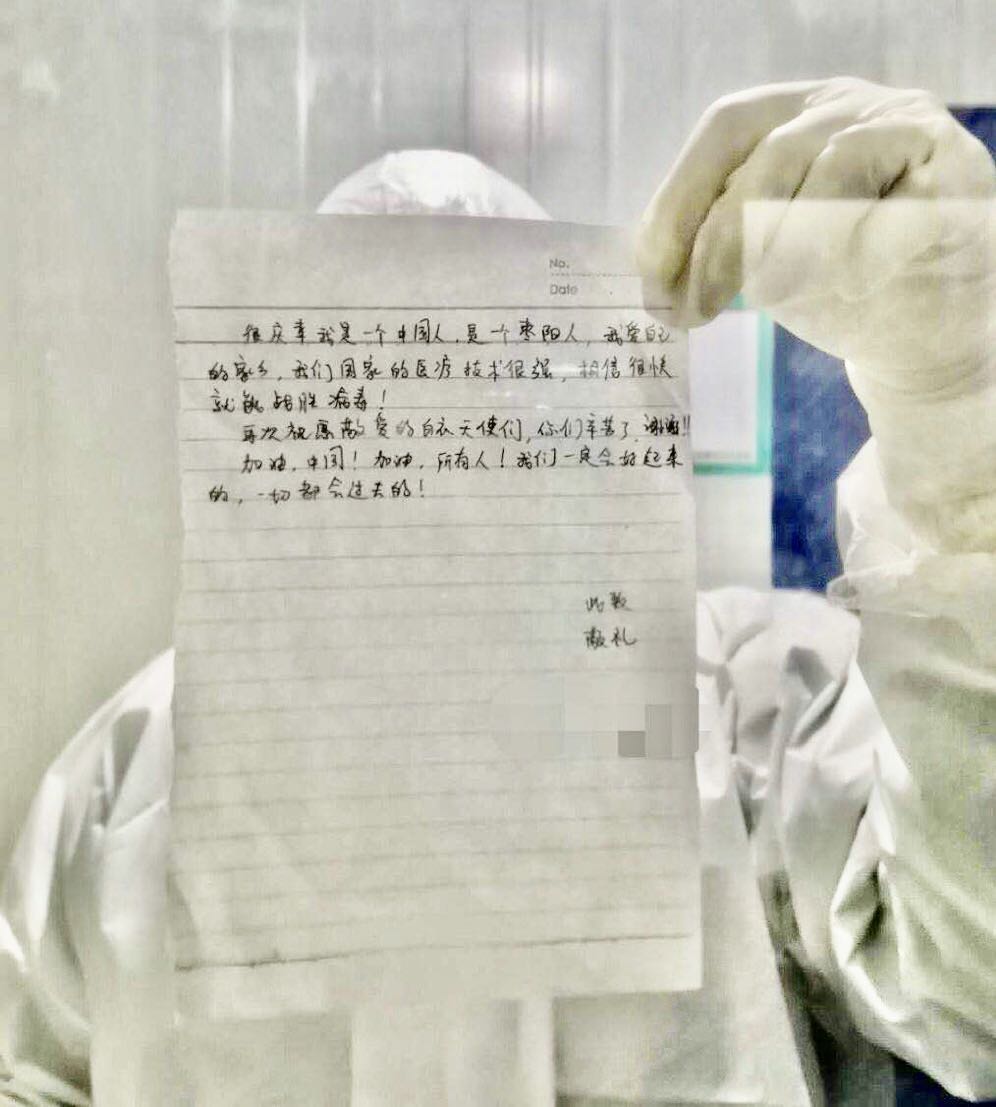 No.
Date
很庆幸我是一个中国人，是一个枣阳人，我爱自己
的家乡，我们国家的医疗技术很强，相信很快
就能战胜病毒！
再次祝愿敬爱的白衣天使们，你们辛苦了，谢谢!!
加油，中国！加油，所有人！我们一定会好起来
的，一切都会过去的！
此致
敬礼